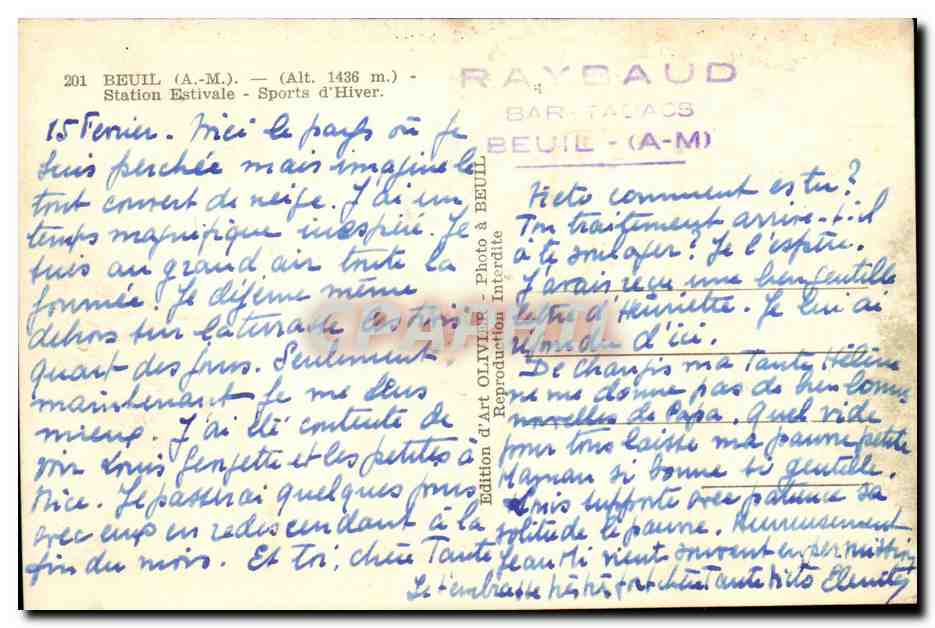 201 BEUIL (A.-M.). — (Alt. 1436 m.) -
Station Estivale - Sports d'Hiver.
RAYBAUD
BAR-TABACS
BEUIL - (A-M)
15 Fevrier. Voici le pays où je
suis perchée mais imagine le
tout couvert de neige. J'ai un
temps magnifique inespéré. Je
suis au grand air toute la
journée. Je déjeune même
dehors sur la terrasse les trois
quart des jours. Seulement
maintenant je me sens
mieux. J'ai été contente de
voir Louis Georgette et les petites à
Nice. Je passerai quelques jours
avec eux en redescendant à la
fin du mois. Et toi, chère Tante
Edition d'Art OLIVIER - Photo à BEUIL
Reproduction Interdite
Victo comment es tu?
Ton traitement arrive-t-il
à te soulager? Je l'espère.
J'avais reçu une bien gentille
lettre d'Henriette. Je lui ai
répondu d'ici.
De Changis ma Tante Hélène
ne me donne pas de bien bonnes
nouvelles de Papa. Quel vide
pour tous laisse ma pauvre petite
Maman si bonne si gentille.
Louis supporte avec patience sa
solitude le pauvre. Heureusement
Jean Mi vient souvent en permission
Je t'embrasse très très fort chère Tante Victo
CPAPHIL